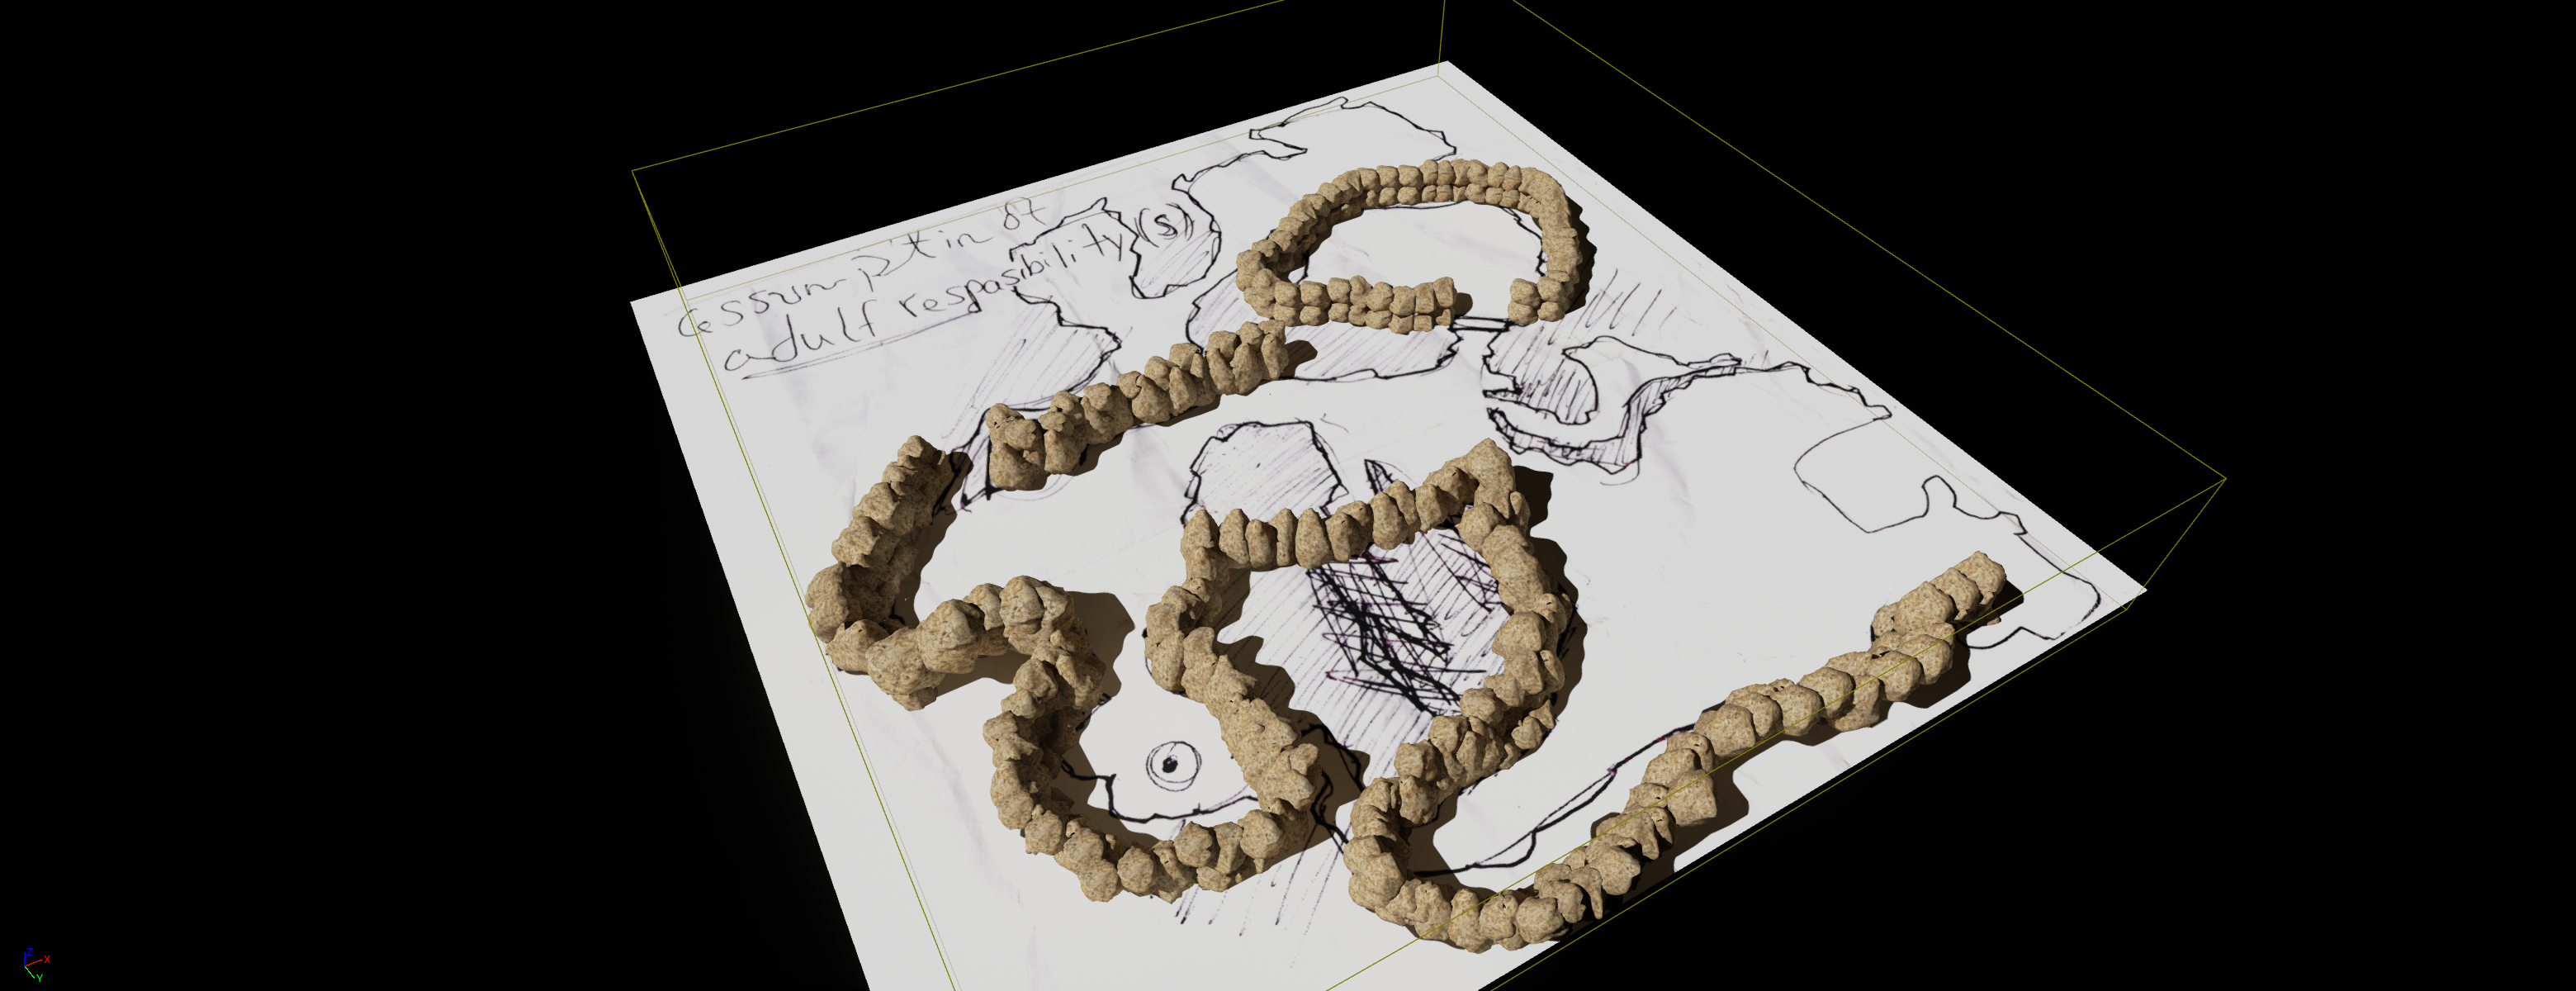 assumpt in 87
adult respasibility (s)
Z
X
Y